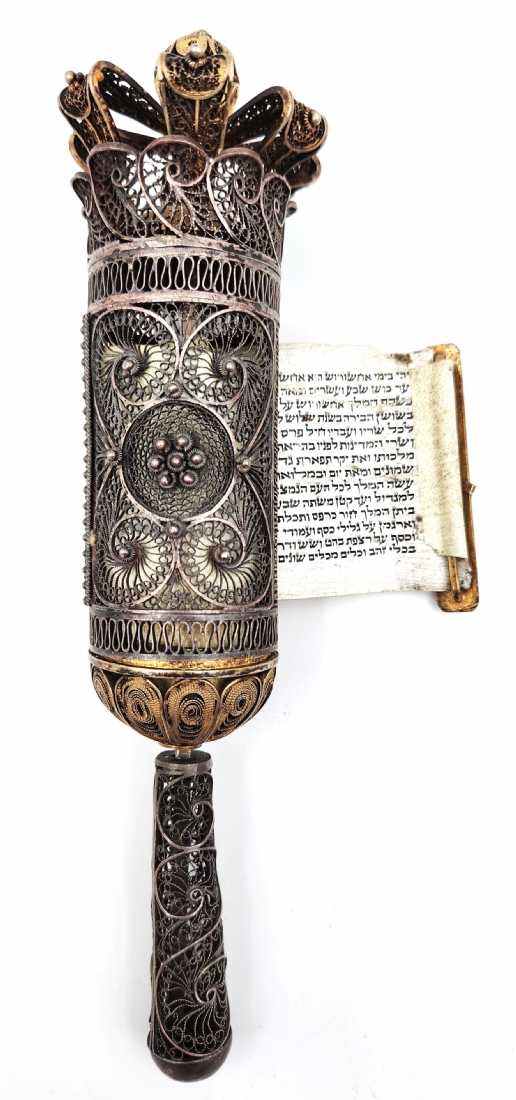 ויהי בימי אחשורוש הוא אחש
עד כוש שבע ועשרים ומאה
כשבת המלך אחשורוש על
בשושן הבירה בשנת שלוש ל
לכל שריו ועבדיו חיל פרס
ושרי המדינות לפניו בהראת
מלכותו ואת יקר תפארת גד
שמונים ומאת יום ובמלוא
עשה המלך לכל העם הנמצ
למגדול ועד קטן משתה שב
ביתן המלך חור כרפס ותכלת
וארגמן על גלילי כסף ועמודי
וכסף על רצפת בהט ושש ודר
בכלי זהב וכלים מכלים שונים